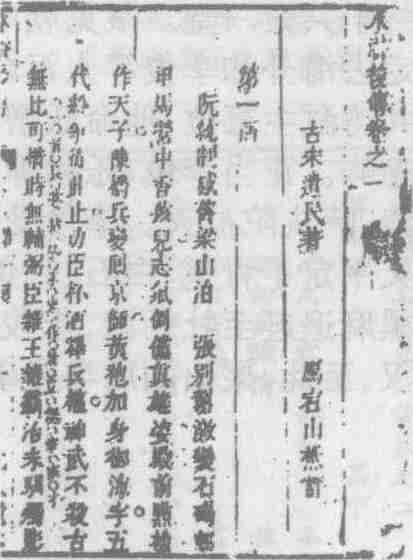 水滸後傳卷之一
古宋遺民著 鴈宕山樵評
第一回
阮統制感舊梁山泊 張別駕激變石碣村
甲馬營中香孩兒志氣倜儻真雄姿殿前點檢
作天子陳橋兵變回京師黃袍加身御海宇五
代紛爭從此止功臣杯酒釋兵權神武不殺古
無比可惜時無輔弼臣雜王雜霸治未馴燭影